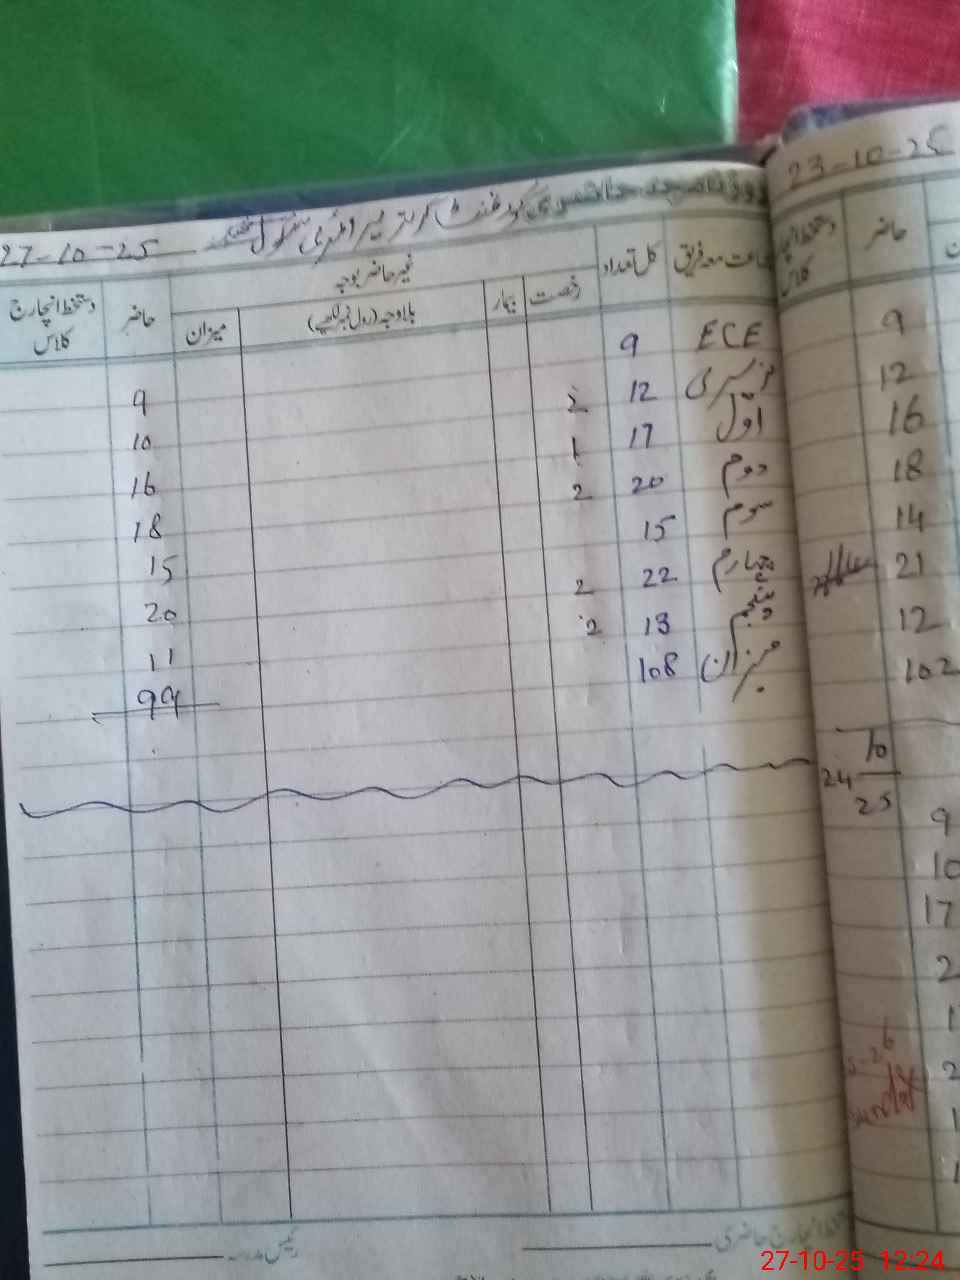 روزنامچہ حاضری گورنمنٹ گرلز پرائمری سکول
27-10-25
جماعت معہ فریق کل تعداد غیر حاضر بوجہ حاضر دستخط انچارج کلاس
رخصت بیمار بلاوجہ (رول نمبر لکھیے) میزان
ECE 9 9
نرسری 12 2 10
اوّل 17 1 16
دوم 20 2 18
سوم 15 15
چہارم 22 2 20
پنجم 13 2 11
میزان 108 99
انچارج حاضری
رئیس مدرسہ
23-10-25
حاضر دستخط انچارج کلاس
9
12
16
18
14
21
12
102
24 10 25
9
10
17
27-10-25 12:24